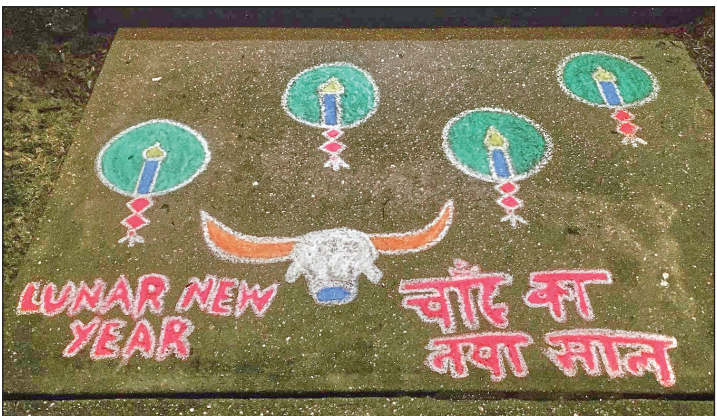 LUNAR NEW
YEAR
चाँद का
नया साल